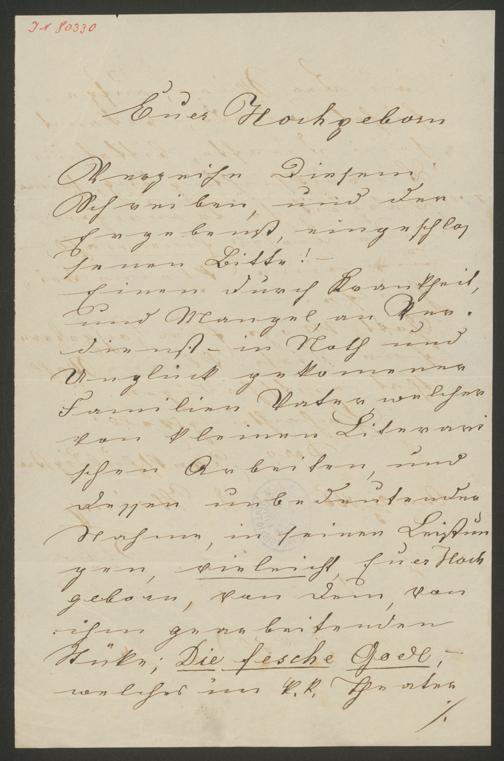 I.N. 80330
Euer Hochgeborn
Verzeihe Diesem
Schreiben, und der
Ergebenst, eingeschlos
senen Bitte! –
Einen durch Krankheit,
und Mangel, an Ver-
dienst – in Noth und
Unglück gekomener
Familien Vater welcher
von kleinen Literari
schen Arbeiten, und
dessen unbedeutender
Nahme, in seinen Leistun
gen, vieleicht, Euer Hoch
geborn, von dem, von
ihm gearbeitenden
Stüke; Die fesche Godl, –
welches im k.k. Theater
./.